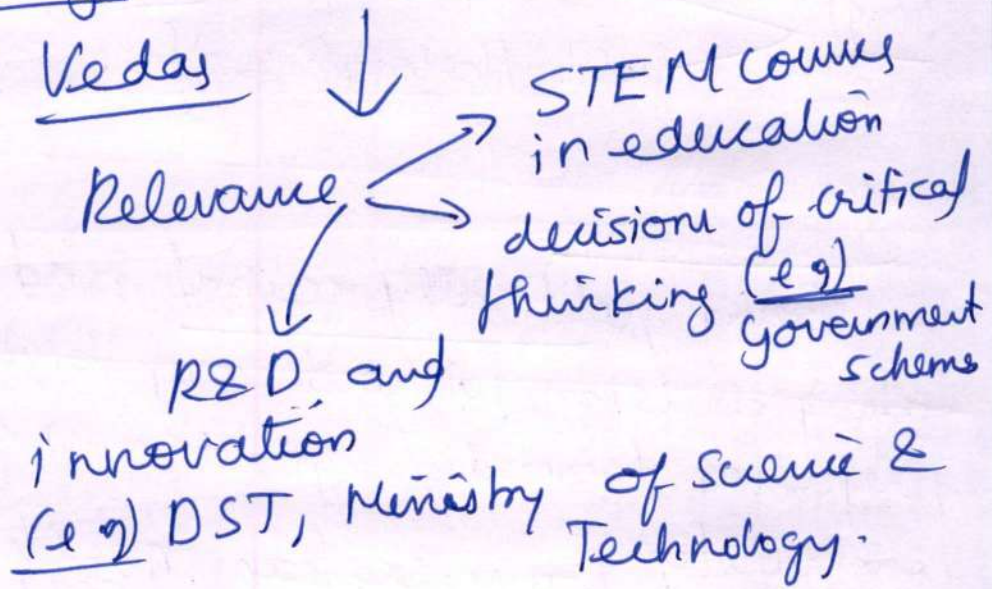 Vedas
Relevance
STEM courses
in education
decisions of critical
thinking (eg)
government
schems
R&D and
innovation
(eg) DST, Ministry of Science &
Technology.